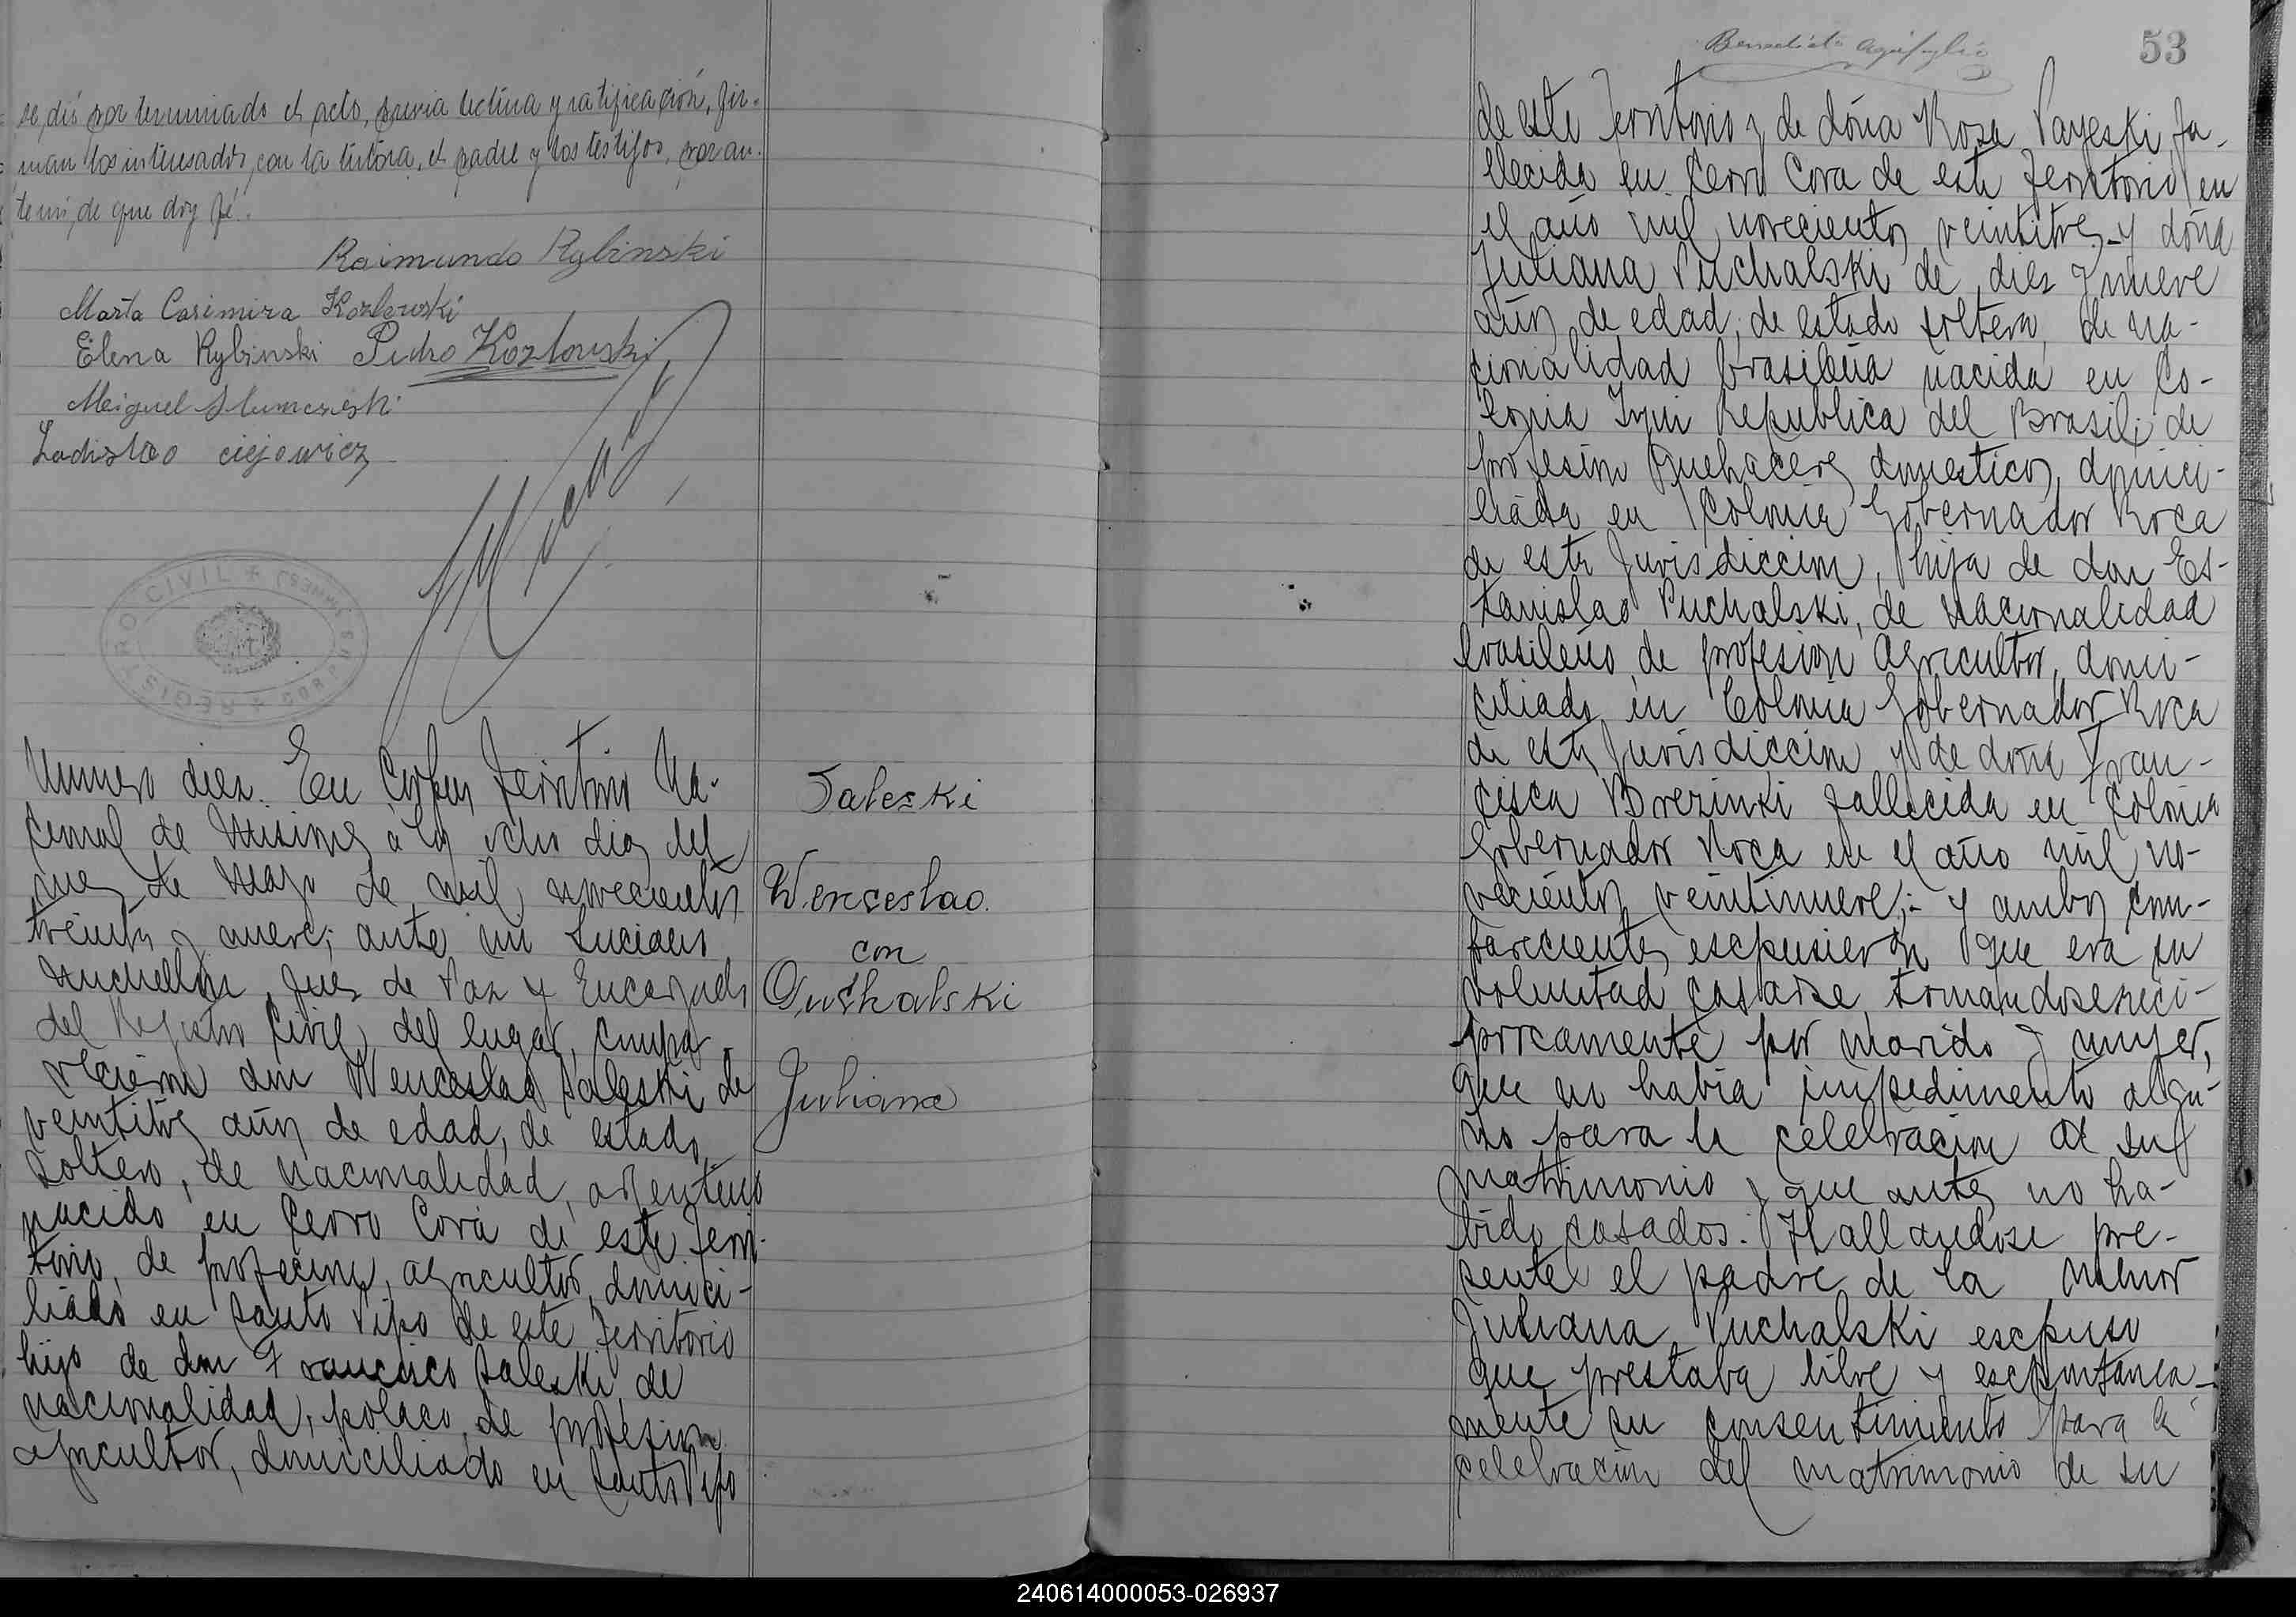 se dió por terminado el acto, previa lectura y ratificación, fir-
man los interesados, con la tutora, el padre y los testigos, por an-
te mi, de que doy fé.
Raimundo Rybinski
Marta Casimira Kozlowski
Elena Rybinski Pedro Kozlowski
Meiguel
Ladislao ciejowicz
REGISTRO CIVIL
CORPUS
Numero diez. En Corpus, Territorio Na-
cional de Misiones a los ocho dias del
mes de Mayo de mil novecientos
treinta y nueve; ante mi Luciano
Juez de Paz y Encargado
del Registro Civil del lugar, compa-
recieron don Wenceslao Saleski de
veintitres años de edad, de estado
soltero, de nacionalidad, argentino
nacido en Cerro Corá de este Terri-
torio, de profecion, agricultor, domici-
liado en Santo Pipo de este Territorio
hijo de don Francisco Saleski de
nacionalidad, polaco, de profesion
agricultor, domiciliado en Santo Pipo
Saleski
Wenceslao
con
Puchalski
Juliana
53
de este Territorio y de dóna Rosa Payeski, fa-
llecida en Cerro Cora de este Territorio en
el año mil novecientos veintitres - y dóna
Juliana Puchalski de diez y nueve
años de edad, de estado soltera, de na-
cionalidad brasileña nacida en Co-
lonia Republica del Brasil; de
profesion quehaceres domesticos, domici-
liada en Colonia Gobernador Roca
de esta Jurisdiccion, hija de don Es-
tanislao Puchalski, de nacionalidad
brasileño, de profesion agricultor, domi-
ciliado en Colonia Gobernador Roca
de esta Jurisdiccion y de dona Fran-
cisca Brezinki fallecida en Colonia
Gobernador Roca en el año mil no-
vecientos veintinueve;- y ambos com-
parecientes escpusieron que era su
voluntad casarse, tomandose reci-
procamente por marido y mujer,
que no habia impedimento algu-
no para la celebracion de su
matrimonio y que antes no ha-
bido casados. Hallandose pre-
sente el padre de la menor
Juliana Puchalski escpuso
que prestaba libre y escpontanea-
mente su consentimiento para la
celebracion del matrimonio de su
240614000053-026937